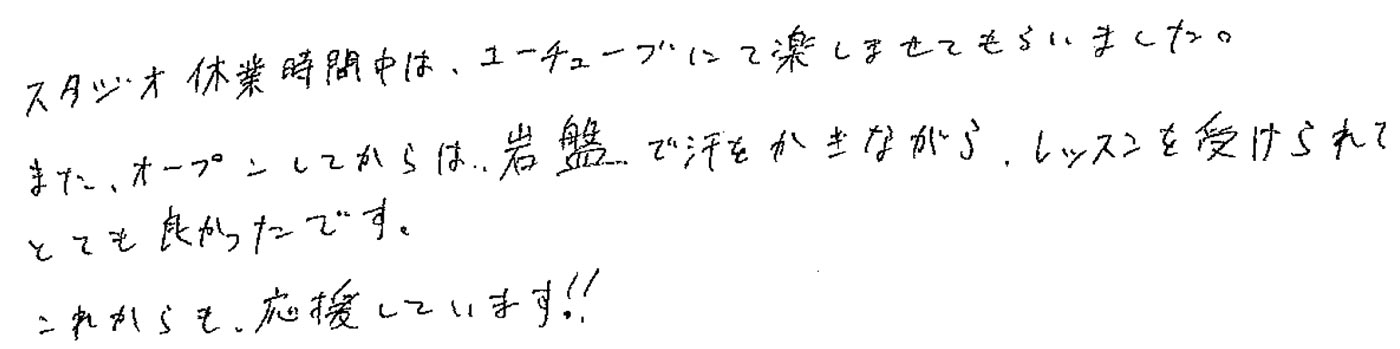 スタジオ休業時間中は、ユーチューブにて楽しませてもらいました。
また、オープンしてからは、岩盤で汗をかきながら、レッスンを受けられて
とても良かったです。
これからも、応援しています!!